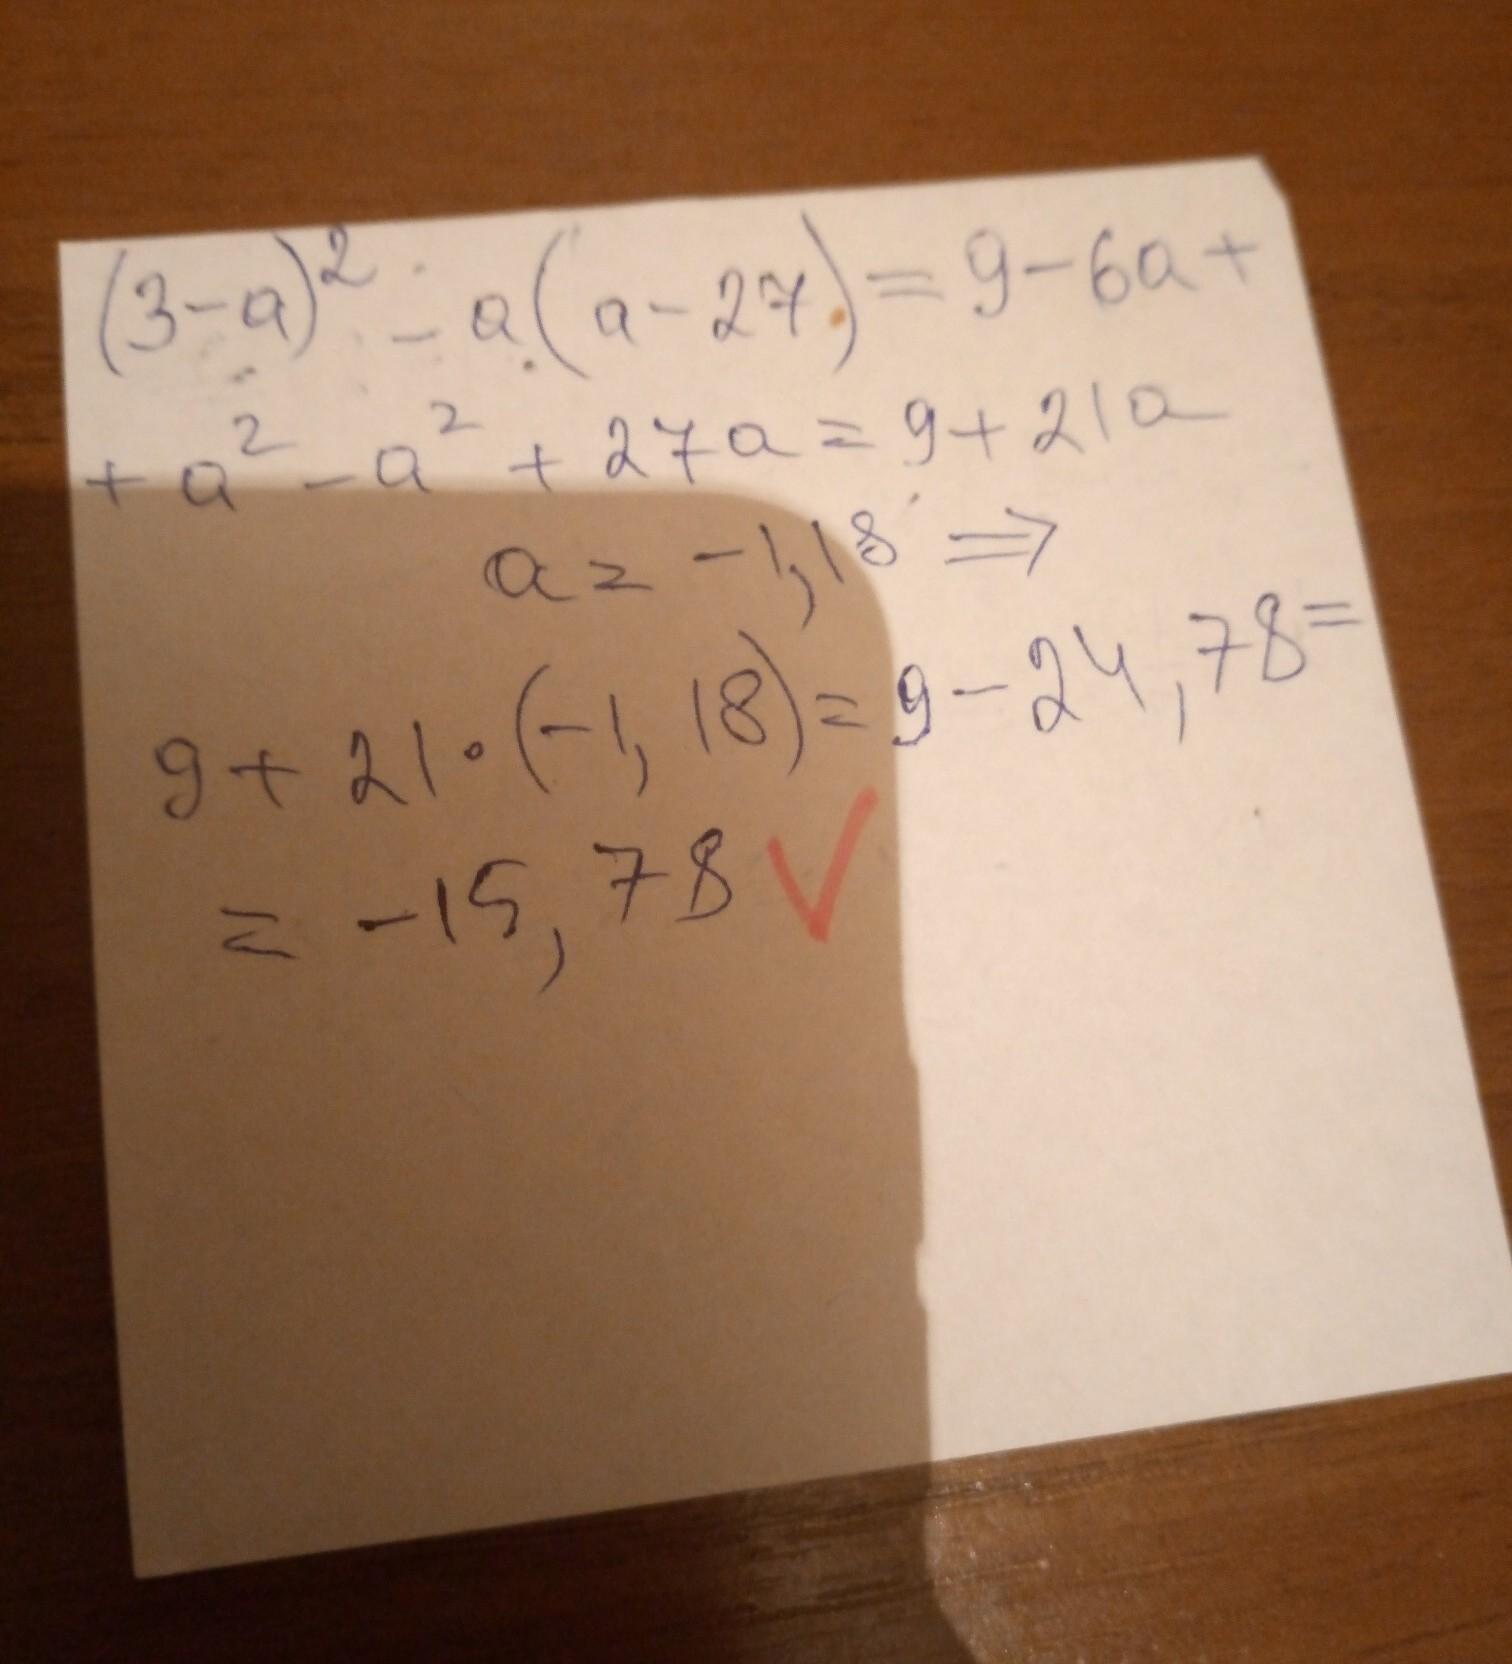 (3-a)² - a(a-27) = 9-6a+
+a²-a²+27a=9+21a
a=-1,18 ⇒
9+21·(-1,18)=9-24,78=
=-15,78 ✓